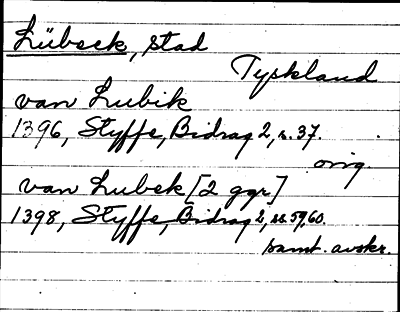 Lübeck, stad
Tyskland
van Lubik
1396, Styffe, Bidrag 2, s. 37.
orig.
van Lubek [2 ggr]
1398, Styffe, Bidrag 2, ss. 59, 60.
samt. avskr.